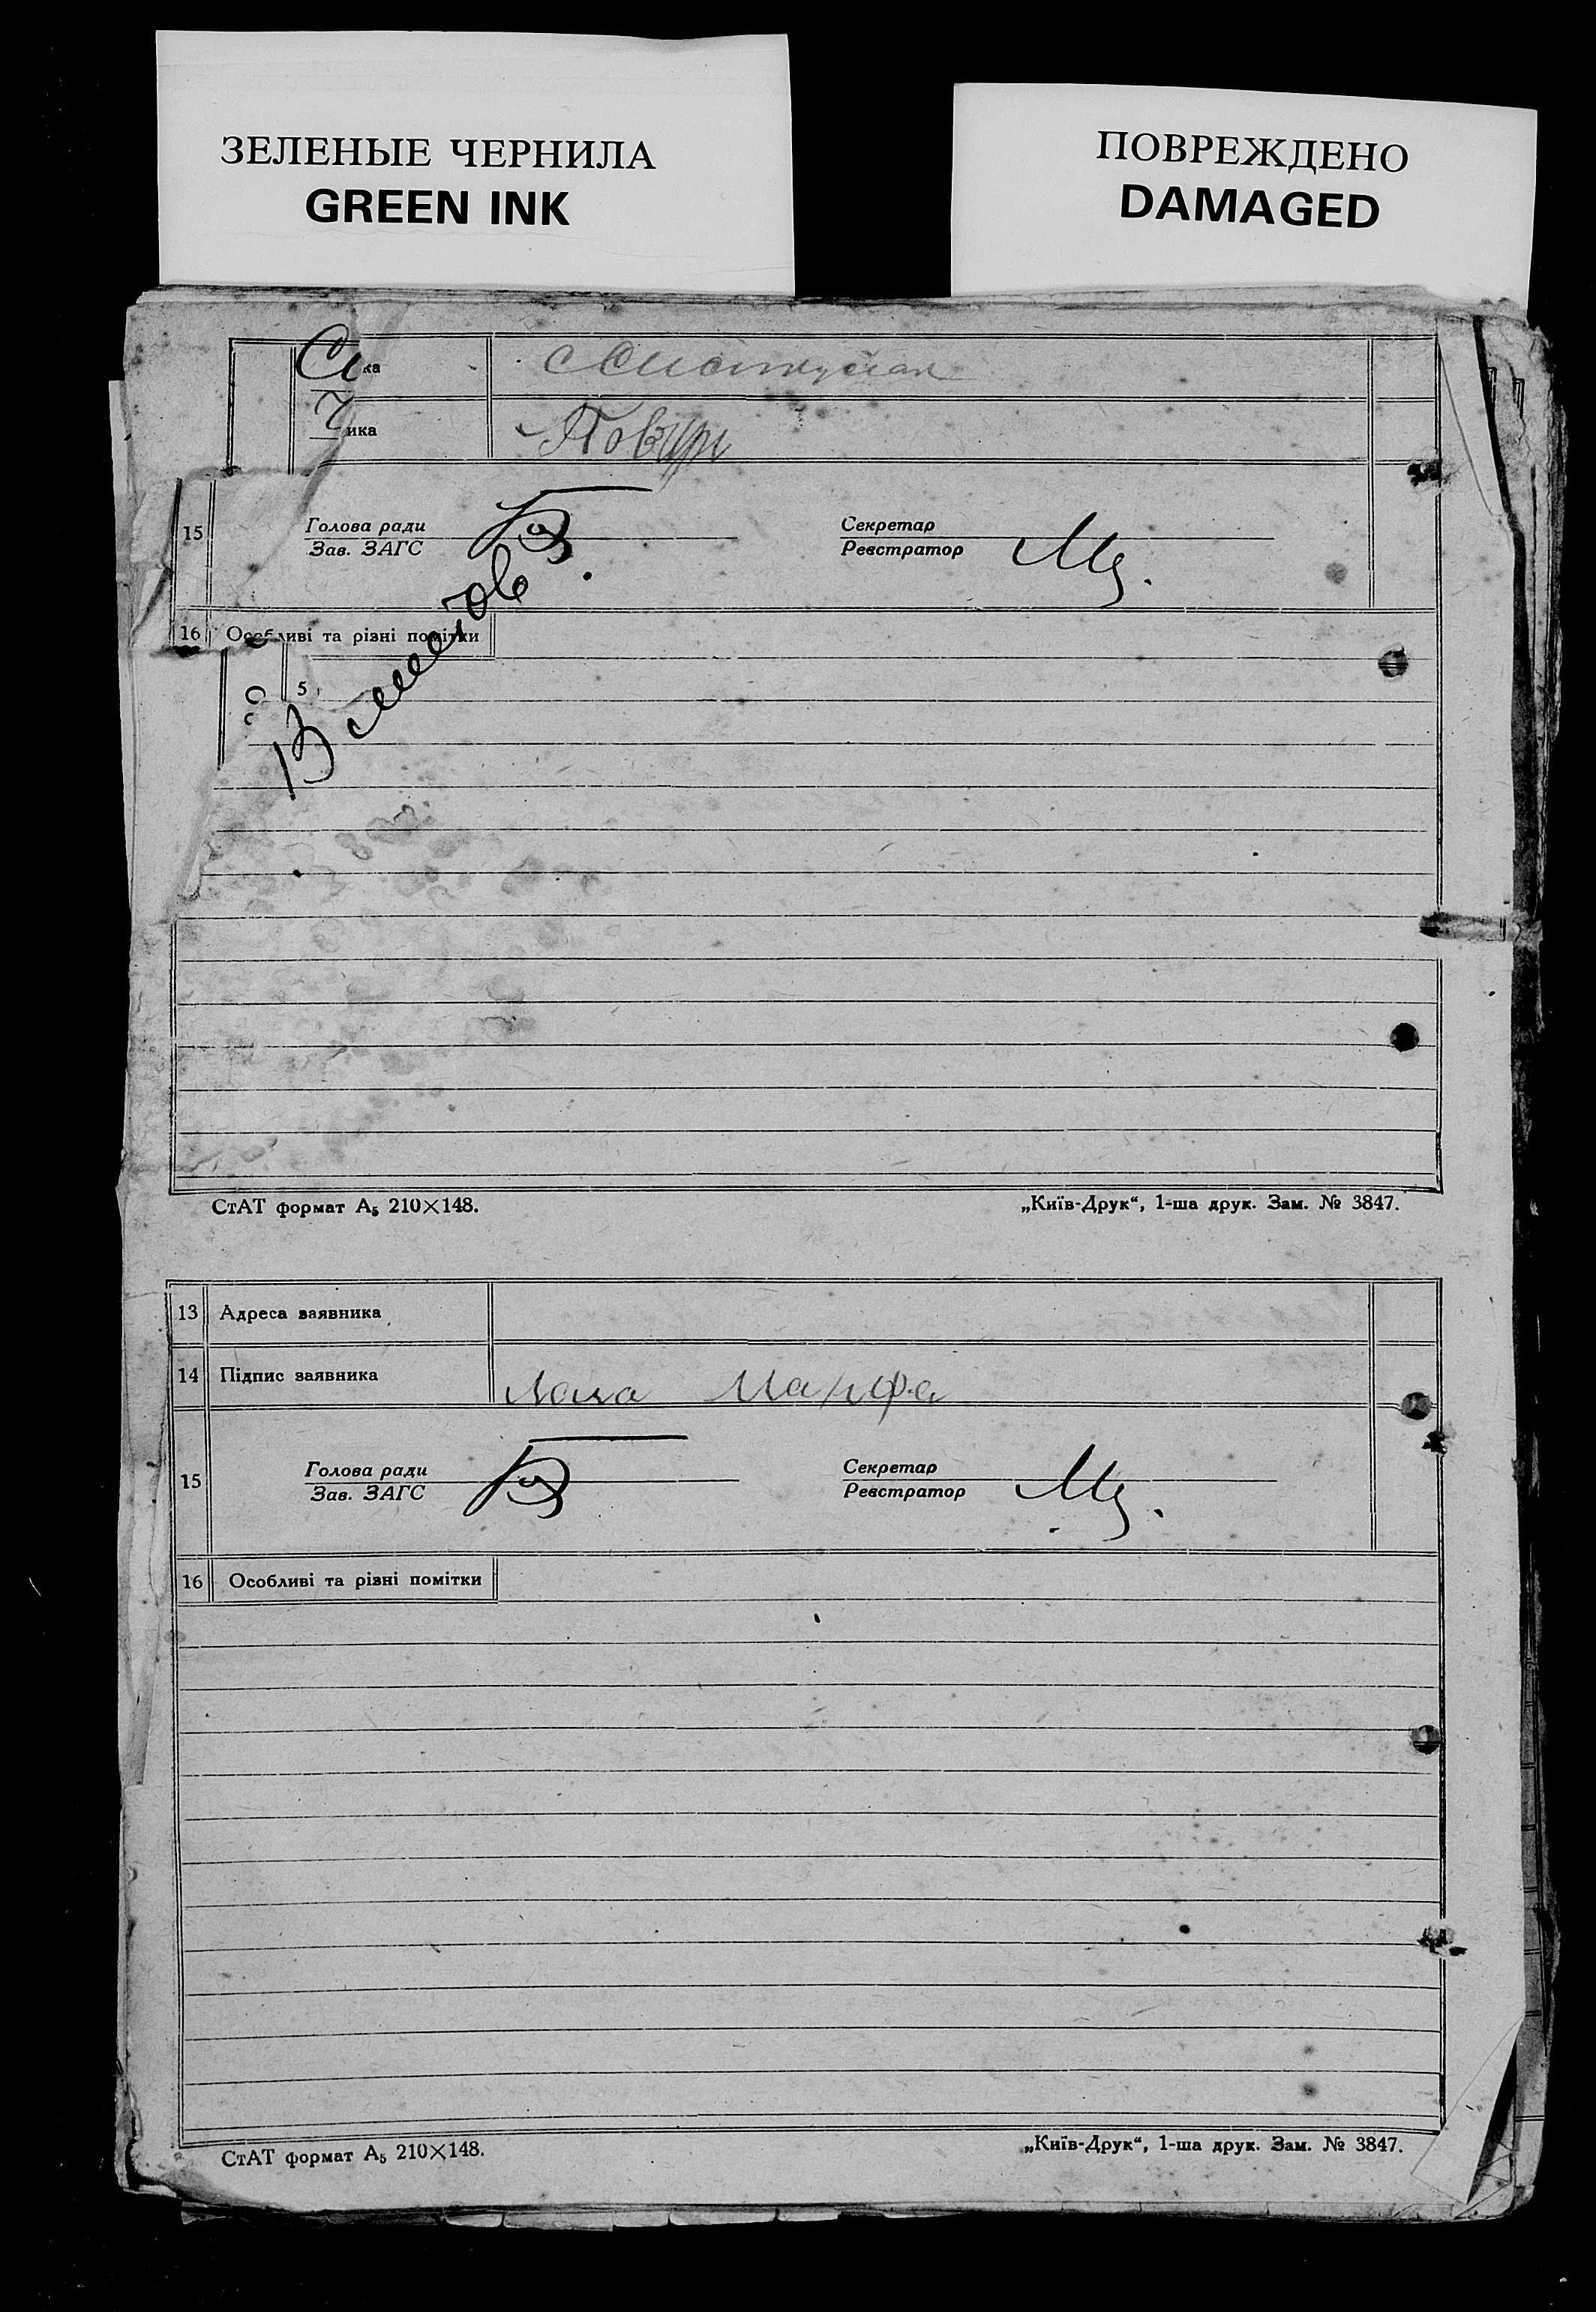 ЗЕЛЕНЫЕ ЧЕРНИЛА
GREEN INK
ПОВРЕЖДЕНО
DAMAGED
ка
ика
15
Голова ради
Зав. ЗАГС
Секретар
Реєстратор
16 Особливі та різні помітки
5
СтАТ формат А5 210×148.
„Київ-Друк“, 1-ша друк. Зам. № 3847.
13 Адреса заявника
14 Підпис заявника Марфа
15
Голова ради
Зав. ЗАГС
Секретар
Реєстратор
16 Особливі та різні помітки
СтАТ формат А5 210×148.
„Київ-Друк“, 1-ша друк. Зам. № 3847.